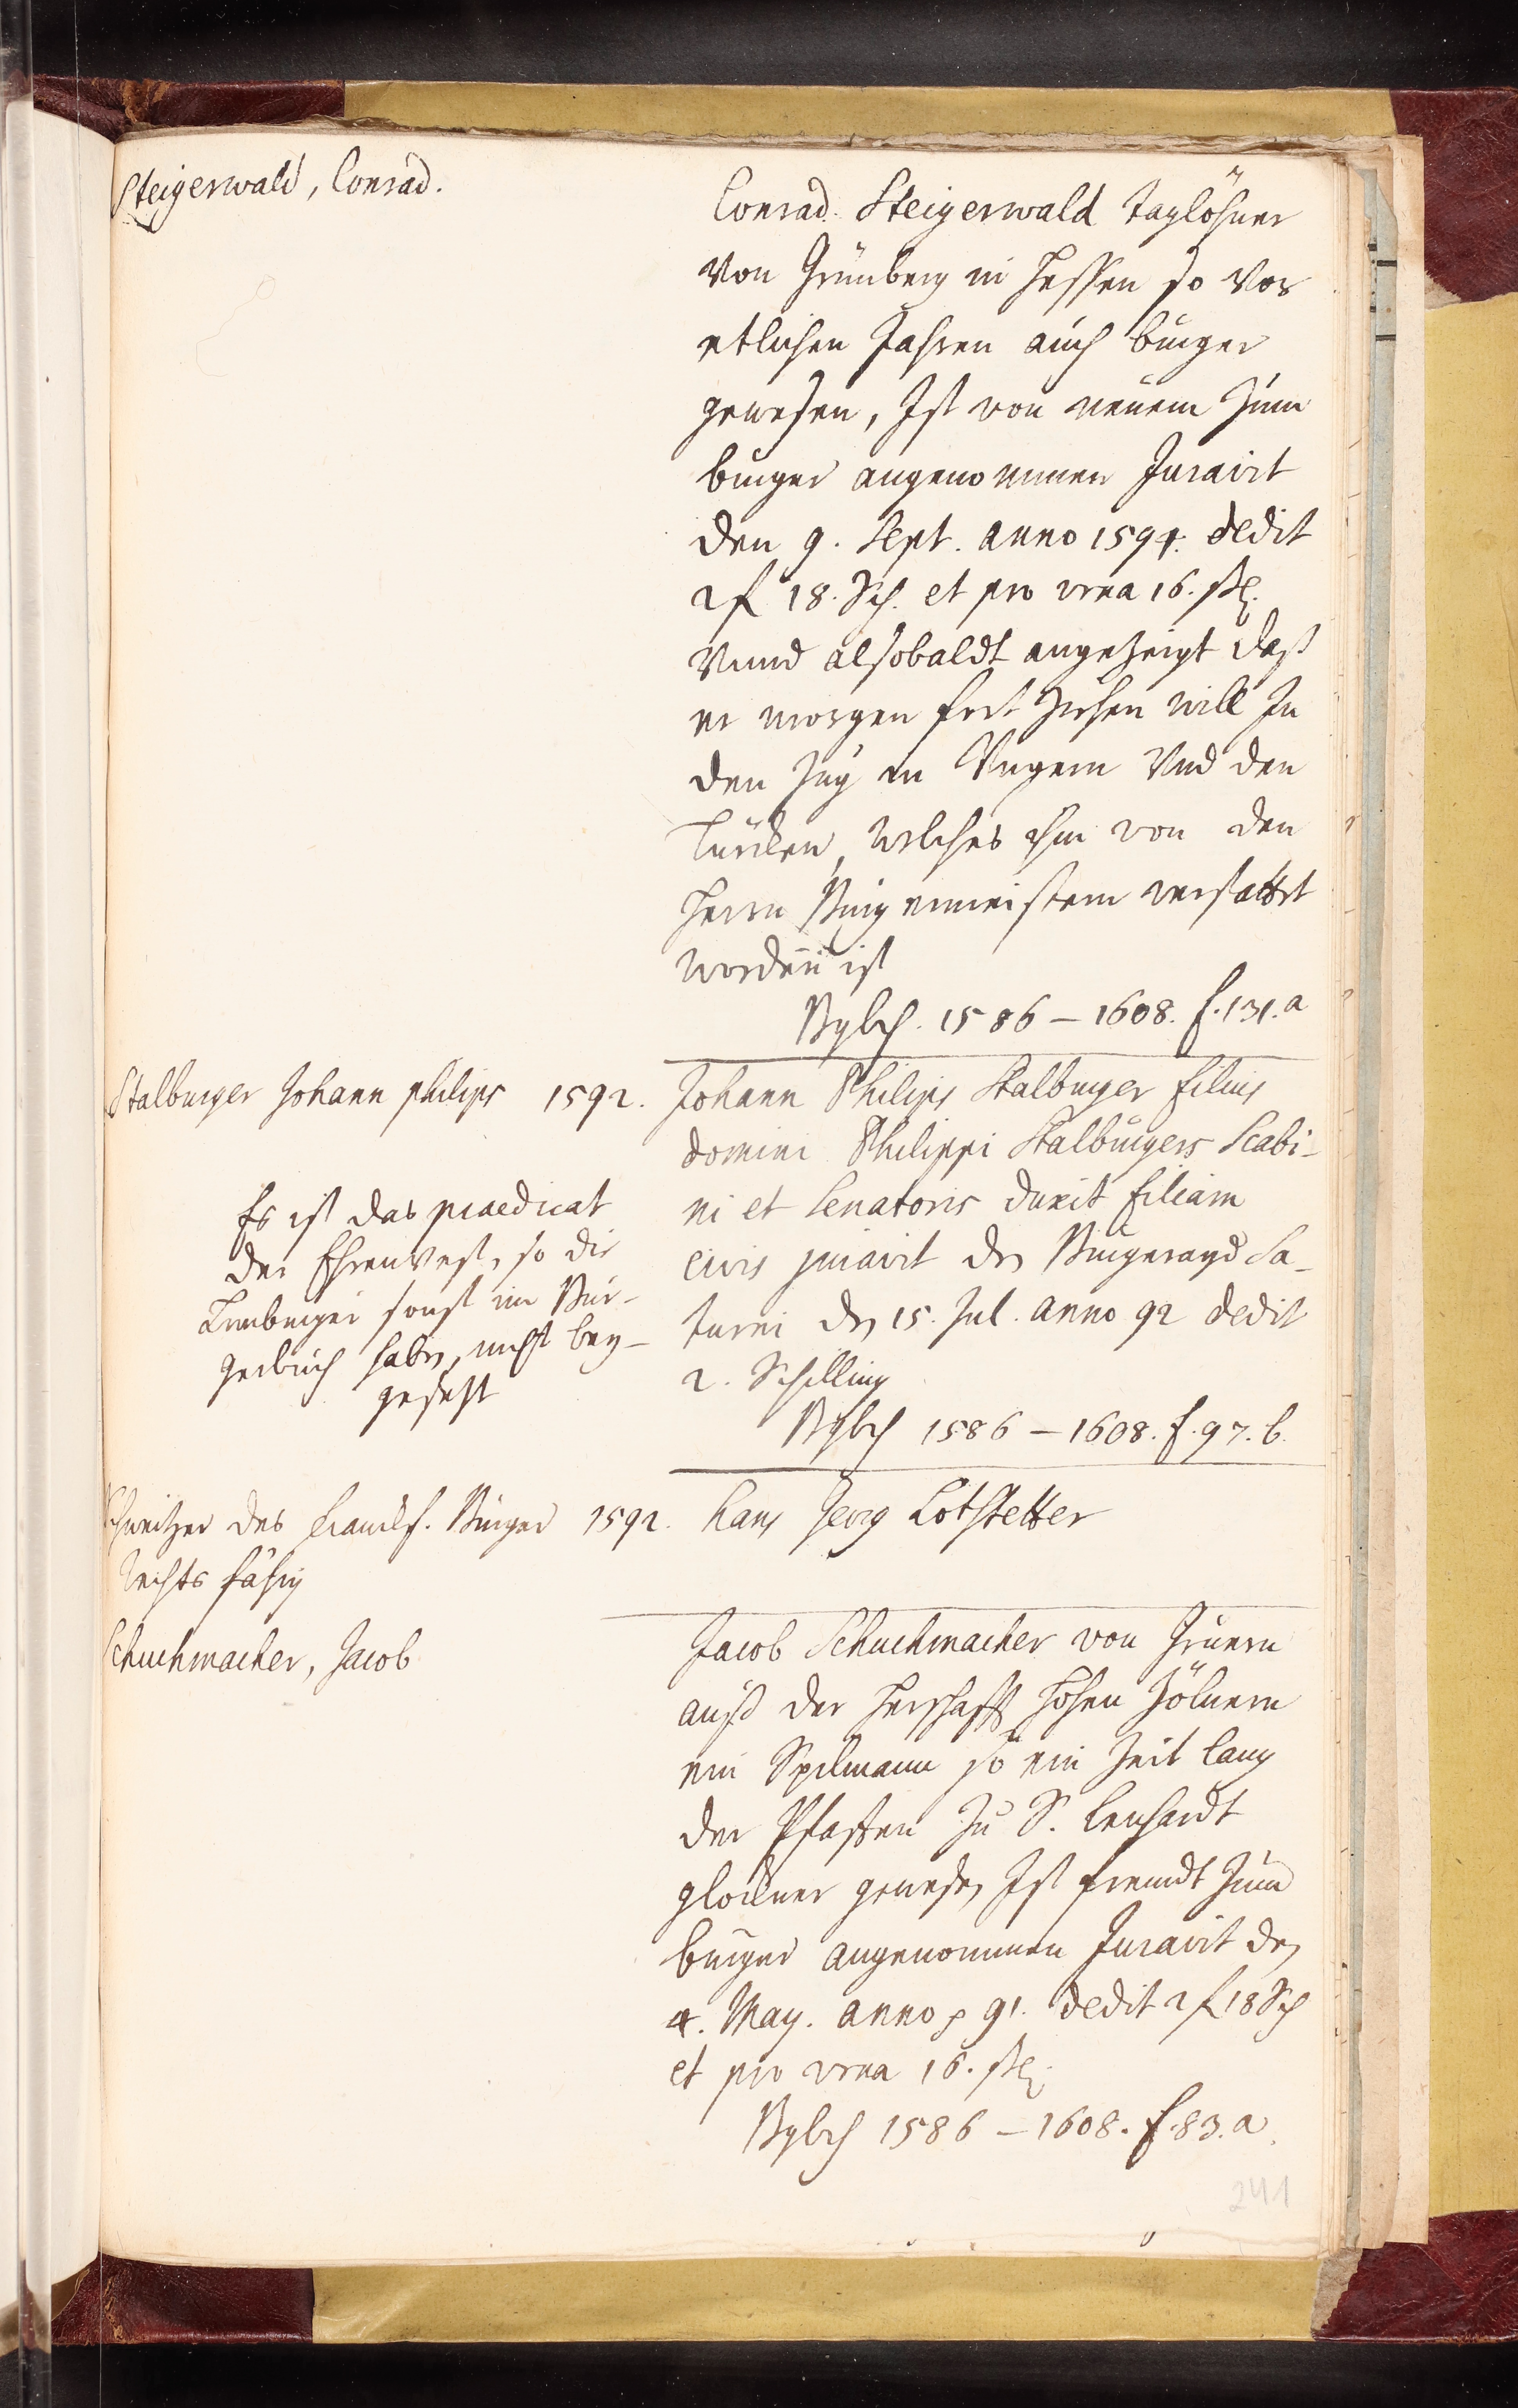 Steigerwald, Conrad.
Conrad. Steigerwald taglöhner
von Grünberg in Hessen so vor
etlichen Jahren auch burger
gewesen, Ist von neuem zum
burger angenommen Juravit
den 9. Sept. anno 1594. dedit
2 f 18. Sch. et pro vrna 16. ßl.
Vnnd alsobaldt angezeigt daß
er morgen fort ziehen will In
den Zug in Vngern Vnd den
Türcken, welches ihm von den
Herrn Burgermeistern verstattet
worden ist
Bgbch. 1586 – 1608. f. 131. a
Stalburger Johann philips 1592.
Johann Philips Stalburger filius
domini Philippi Stalburgers Scabi-
ni et Senatoris duxit filiam
civis juravit den Burgerayd Sa-
turni den 15. Jul. anno 92 dedit
2. Schilling
Bgbch 1586 – 1608. f. 97. b.
Es ist das praedicat
der Ehrenvest, so die
sonst im Bur-
gerbuch haben, nicht bey-
gesetzt
Schweitzer des Franckf. Burger 1592.
Rechts fähig
Hans Georg Lotstetter
Schuchmacher, Jacob
Jacob Schuchmacher von
auß der Herschafft Hohen Zölnern
ein Spilmann so ein Zeit lang
der Pfaffen zu S. Lenhardt
glöckner gewesen Ist frembdt zum
burger angenommen Juravit den
4. May. anno p 91. dedit 2 f 18 Sch
et pro vrna 16. ßl.
Bgbch 1586 – 1608. f. 83. a.
241